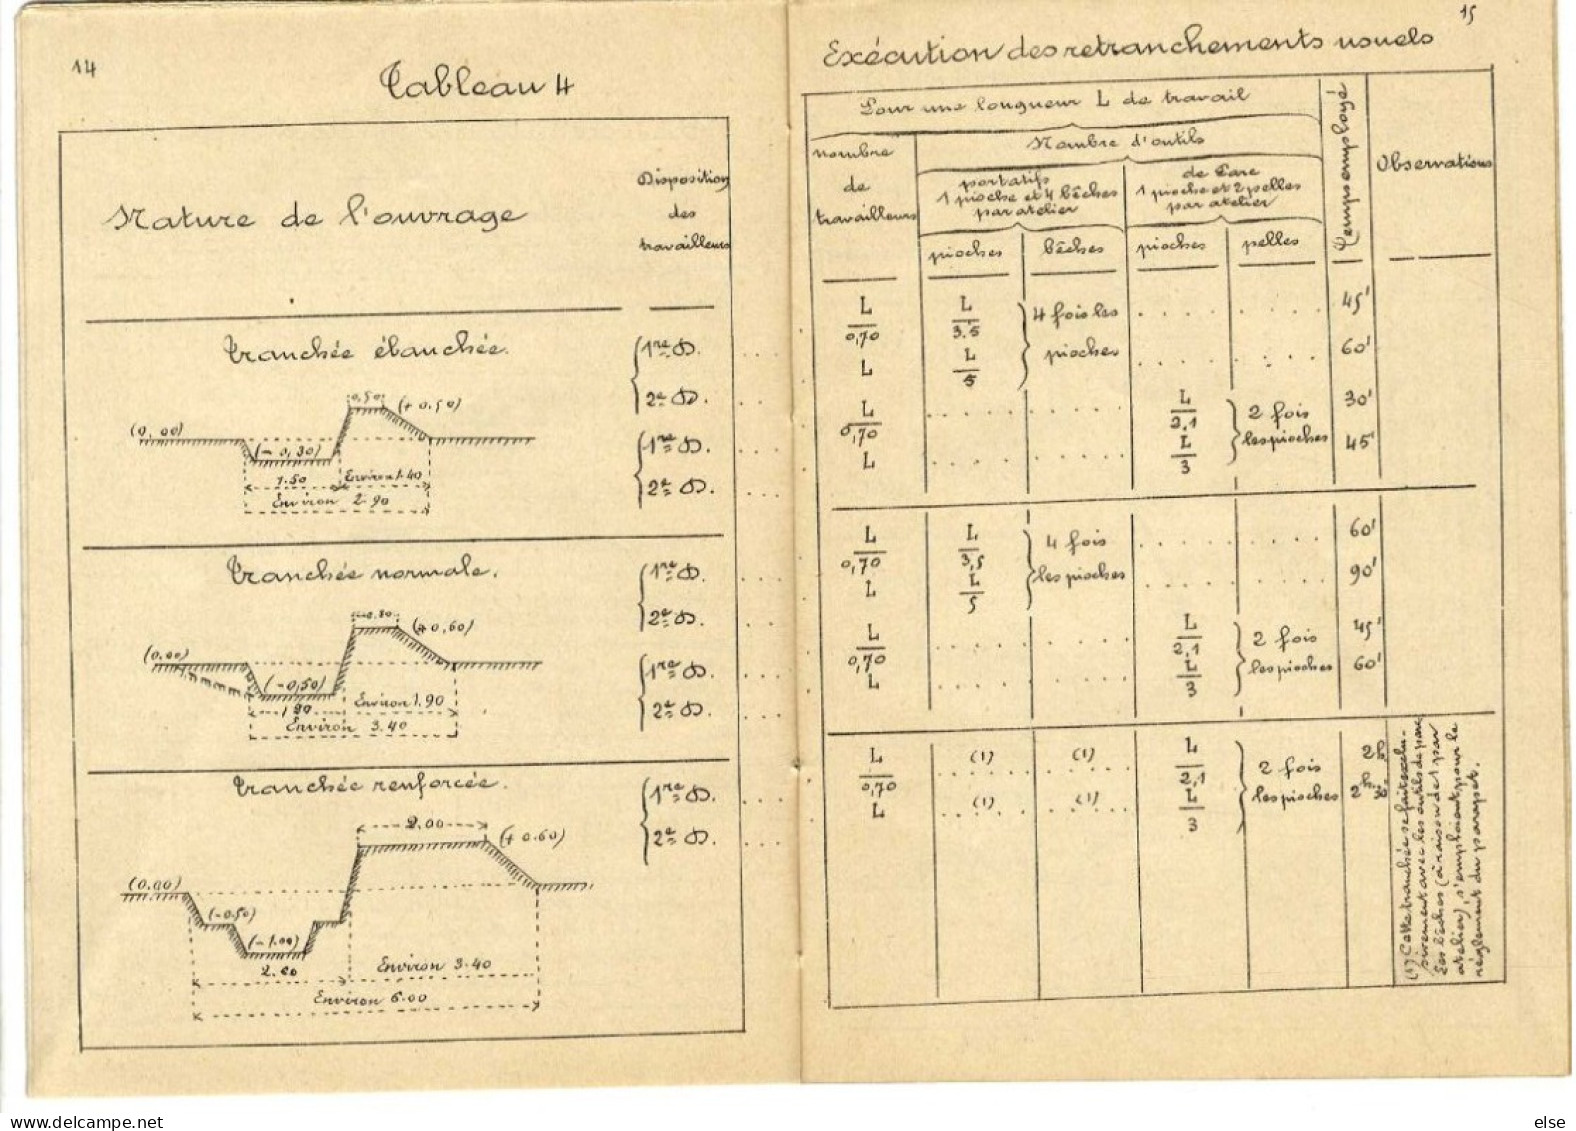 14
Tableau 4
Nature de l'ouvrage
Disposition
des
travailleurs
Tranchée ébauchée.
0,50
(+ 0,50)
(0,00)
(- 0,30)
1.50
Environ 1.40
Environ 2.90
{ 1re D. ...
2e D. ...
{ 1re D. ...
2e D. ...
Tranchée normale.
0.80
(+ 0,60)
(0,00)
(-0,50)
Environ 1.90
Environ 3.40
{ 1re D. ...
2e D. ...
{ 1re D. ...
2e D. ...
Tranchée renforcée.
2.00
(+ 0.60)
(0.00)
(-0.50)
(-1.00)
Environ 3.40
Environ 6.00
{ 1re D. ...
2e D. ...
15
Exécution des retranchements usuels
Pour une longueur L de travail
Temps employé
Observations
nombre
de
travailleurs
Nombre d'outils
portatifs
1 pioche et 4 bêches
par atelier
de Parc
1 pioche et 2 pelles
par atelier
pioches
bêches
pioches
pelles
L/0,70 L/3.5 } 4 fois les ... ... 45'
L L/5 pioches ... ... 60'
L/0,70 ... ... L/2,1 } 2 fois 30'
L ... ... L/3 les pioches 45'
L/0,70 L/3,5 } 4 fois ... ... 60'
L L/5 les pioches ... ... 90'
L/0,70 ... ... L/2,1 } 2 fois 45'
L ... ... L/3 les pioches 60'
L/0,70 (1) (1) L/2,1 } 2 fois 2h
L (1) (1) L/3 les pioches 2h
(1) Cette tranchée se fait exclu-
sivement avec les outils de parc
Les bêches (à raison de 1 par
atelier), s'emploient pour le
réglement du parapet.
www.delcampe.net
else